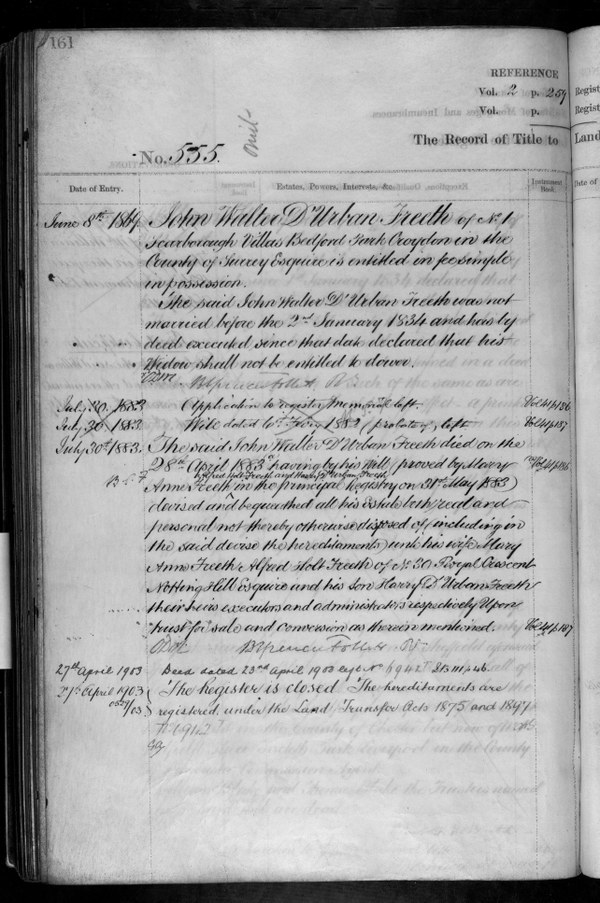 161
REFERENCE
Vol. 2 p. 259
Vol. p.
The Record of Title to
No. 555.
Date of Entry.
Estates, Powers, Interests, &c.
Instrument
June 8th 1869
John Walter D'Urban Freeth of No. 1
Scarborough Villas Bedford Park Croydon in the
County of Surrey Esquire is entitled in fee simple
in possession.
The said John Walter D'Urban Freeth was not
married before the 2nd January 1834 and has by
deed executed since that date declared that his
Widow shall not be entitled to dower.
B Spencer Follett R
July 30. 1883 Application to register Memorial left. Vol 41 p 186
July 30 1883 Will dated 1882 (probate of) left Vol 41 p 187
July 30th 1883. The said John Walter D'Urban Freeth died on the
28th April 1883 having by his Will (proved by Mary
Alfred Holt Freeth and Harry D'Urban Freeth
Anne Freeth in the principal Registry on 31st May 1883)
devised and bequeathed all his Estate both real and
personal not thereby otherwise disposed of (including in
the said devise the hereditaments) unto his wife Mary
Anne Freeth Alfred Holt Freeth of No. 20 Royal Crescent
Notting Hill Esquire and his son Harry D'Urban Freeth
their heirs executors and administrators respectively Upon
trust for sale and conversion as therein mentioned. Vol 41 p 187
B Spencer Follett R
27th April 1903 Deed dated 23rd April 1903
27th April 1903 The Register is closed The hereditaments are
registered under the Land Transfer Acts 1875 and 1897
Regist
Regist
Land
Date of